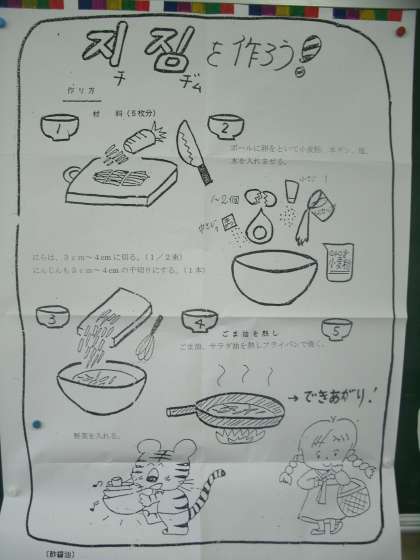 지짐を作ろう!
チ ヂム
作り方
材料(5枚分)
1
にらは、3cm~4cmに切る。(1/2束)
にんじんも3cm~4cmの千切りにする。(1本)
2
ボールに卵をといて小麦粉、
水を入れまぜる。
1~2個
小さじ1
小麦粉
3
野菜を入れる。
4
ごま油を熱し
ごま油、サラダ油を熱しフライパンで焼く。
5
→できあがり!
(酢醤油)